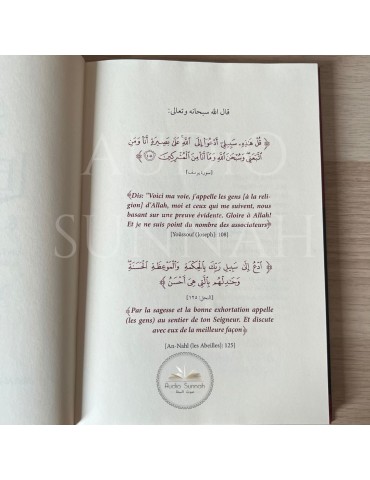 قال الله سبحانه وتعالى:
﴿ قُلْ هَٰذِهِۦ سَبِيلِىٓ أَدْعُوٓا۟ إِلَى ٱللَّهِ ۚ عَلَىٰ بَصِيرَةٍ أَنَا۠ وَمَنِ
ٱتَّبَعَنِى ۖ وَسُبْحَٰنَ ٱللَّهِ وَمَآ أَنَا۠ مِنَ ٱلْمُشْرِكِينَ ١٠٨ ﴾
[سورة يوسف]
﴾Dis: "Voici ma voie, j'appelle les gens [à la reli-
gion] d'Allah, moi et ceux qui me suivent, nous
basant sur une preuve évidente. Gloire à Allah!
Et je ne suis point du nombre des associateurs﴿
[Youssouf (Joseph): 108]
﴿ ٱدْعُ إِلَىٰ سَبِيلِ رَبِّكَ بِٱلْحِكْمَةِ وَٱلْمَوْعِظَةِ ٱلْحَسَنَةِ ۖ
وَجَٰدِلْهُم بِٱلَّتِى هِىَ أَحْسَنُ ﴾
[النحل: ١٢٥]
﴾Par la sagesse et la bonne exhortation appelle
(les gens) au sentier de ton Seigneur. Et discute
avec eux de la meilleure façon﴿
[An-Nahl (les Abeilles): 125]
AUDIO
SUNNAH
Audio Sunnah